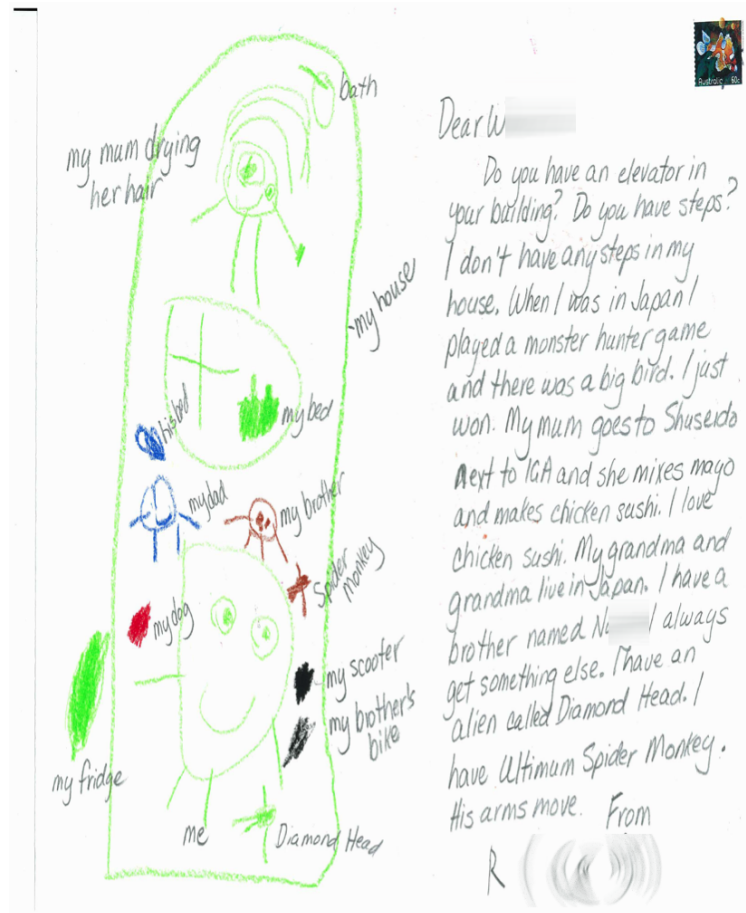 bath
my mum drying
her hair
my house
my bed
his bed
my dad
my brother
Spider
monkey
my dog
my scooter
my brother's
bike
my fridge
me
Diamond Head
Australia 60c
Dear W
Do you have an elevator in
your building? Do you have steps?
I don't have any steps in my
house. When I was in Japan I
played a monster hunter game
and there was a big bird. I just
won. My mum goes to Shuseido
next to IGA and she mixes mayo
and makes chicken sushi. I love
chicken sushi. My grandma and
grandma live in Japan. I have a
brother named N I always
get something else. I have an
alien called Diamond Head. I
have Ultimum Spider Monkey.
His arms move. From
R